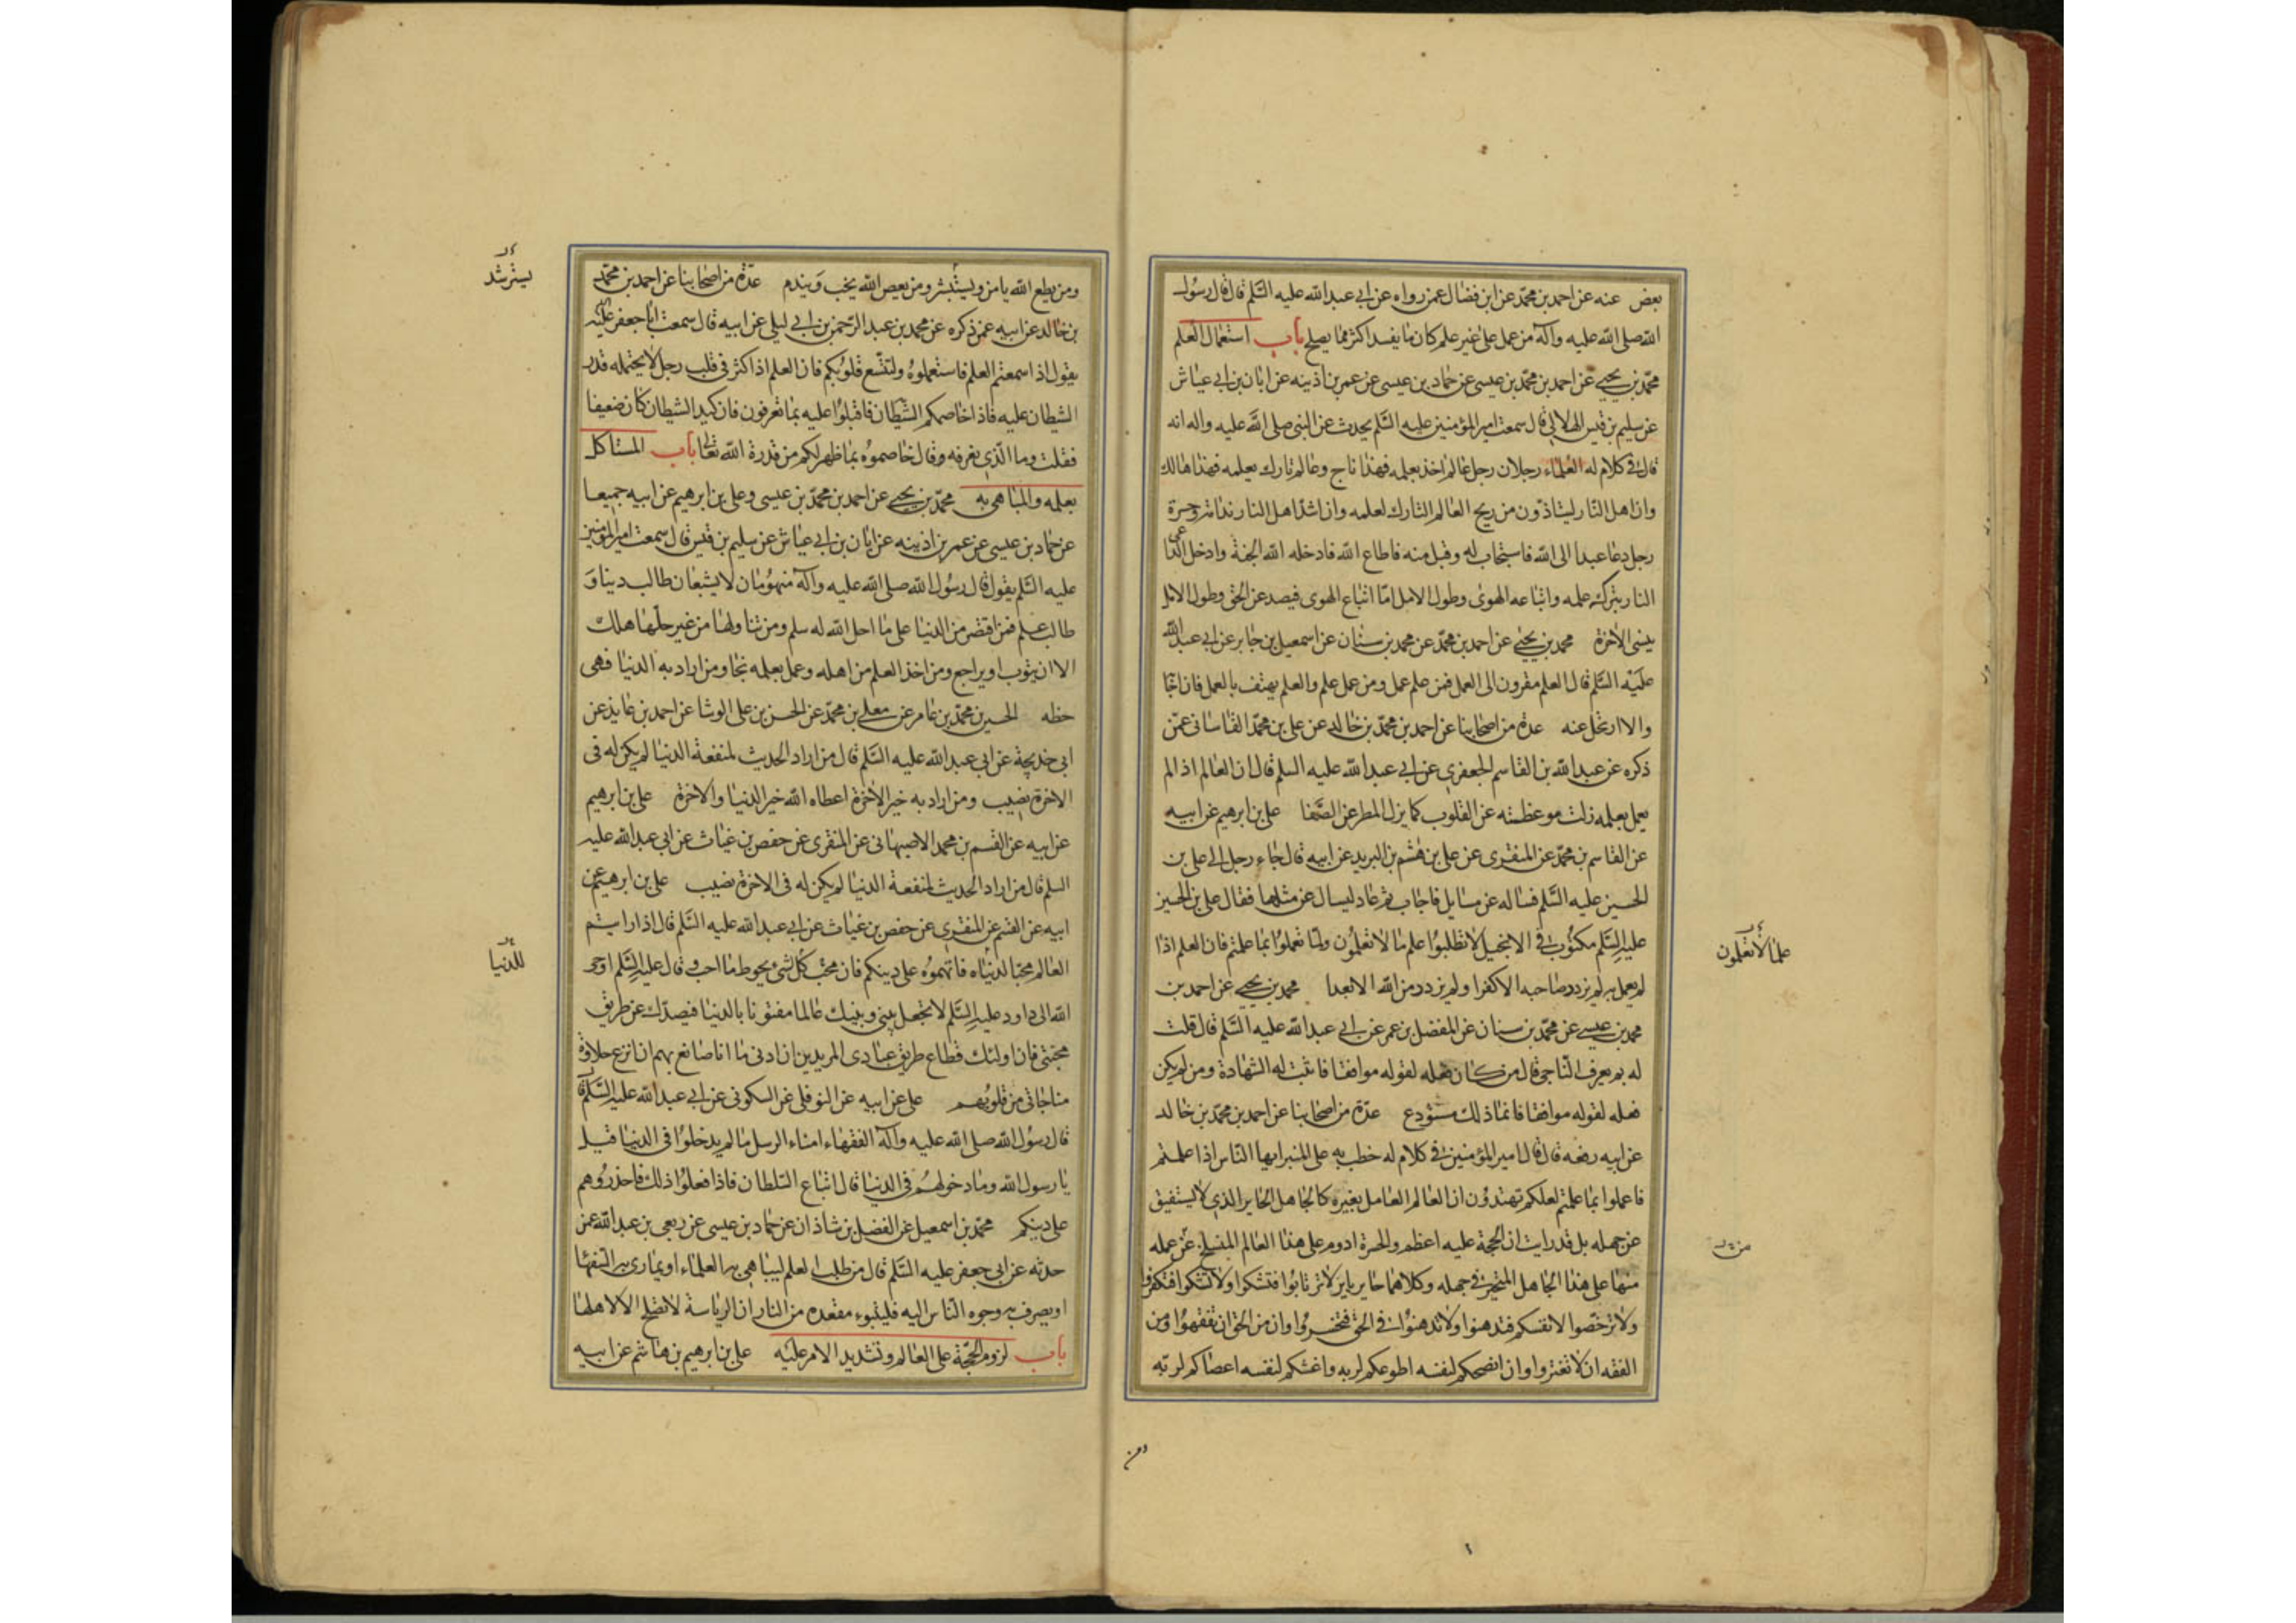 بعض عنه عن احمد بن محمّد عن ابن فضال عمن رواه عن ابى عبد الله عليه السَّلم قال قال رسُول
الله صلى الله عليه وآله من عمل على غير علم كان ما يفسد اكثر مما يصلح باب استعمال العلم
محمّد بن يحيى عن احمد بن محمّد بن عيسى عن حماد بن عيسى عن عمر بن اذينه عن ابان بن ابى عياش
عن سليم بن قيس الهلالى قال سمعت امير المؤمنين عليه السَّلم يحدث عن النبى صلى الله عليه واله انه
قال فى كلام له العلماء رجلان رجل عالم اخذ بعلمه فهذا ناج وعالم تارك بعلمه فهذا هالك
وان اهل النّار ليتاذّون من ريح العالم التارك لعلمه وان اشدّ اهل النار ندامة وحسرة
رجل دعا عبدا الى الله فاستجاب له وقبل منه فاطاع الله فادخله الله الجنة وادخل الدّاعى
النار بتركه علمه واتباعه الهوى وطول الامل امّا اتباع الهوى فيصد عن الحق وطول الامل
ينسى الاخرة محمد بن يحيى عن احمد بن محمّد عن محمد بن سنان عن اسمعيل بن جابر عن ابى عبد الله
عليه السَّلم قال العلم مقرون الى العمل فمن علم عمل ومن عمل علم والعلم يهتف بالعمل فان اجابه
والا ارتحل عنه عدة من اصحابنا عن احمد بن محمّد بن خالد عن على بن محمّد القاسانى عمّن
ذكره عن عبد الله بن القاسم الجعفرى عن ابى عبد الله عليه السلم قال ان العالم اذا لم
يعمل بعلمه زلت موعظته عن القلوب كما يزل المطر عن الصَّفا على بن ابرهيم عن ابيه
عن القاسم بن محمّد عن المنقرى عن على بن هشم بن البريد عن ابيه قال جاء رجل الى على بن
الحسين عليه السَّلم فساله عن مسايل فاجاب ثم عاد ليسال عن مثلها فقال على بن الحسين
عليه السَّلم مكتُوب فى الانجيل لا تطلبوُا علم ما لا تعلمُون ولمّا تعملوُا بما علمتم فان العلم اذا
علما لا تعلمون
لم يعمل به لم يزدد صاحبه الا كفرا ولم يزدد من الله الا بعدا محمد بن يحيى عن احمد بن
محمد بن عيسى عن محمّد بن سنان عن المفضل بن عمر عن ابى عبد الله عليه السَّلم قال قلت
له بم يعرف النّاجى قال من كان فعله لقوله موافقا فاثبت له الشهادة ومن لم يكن
فعله لقوله موافقا فانما ذلك مستودع عدّة من اصحابنا عن احمد بن محمّد بن خالد
عن ابيه رفعه قال قال امير المؤمنين فى كلام له خطب به على المنبر ايها النّاس اذا علمتم
فاعملوا بما علمتم لعلكم تهتدوُن ان العالم العامل بغيره كالجاهل الحاير الذى لا يستفيق
عن جهله بل قد رايت ان الحجة عليه اعظم والحسرة ادوم على هذا العالم المنسلخ عن عمله
منها على هذا الجاهل المتحير فى جهله وكلاهما حاير باير لا ترتابوُا فتشكوا ولا تشكوا فتكفروا
ولا ترخصّوا لانفسكم فتدهنوا ولا تدهنوُا فى الحق فتخسروُا وان من الحق ان تفقهوُا ومن
الفقه ان لا تغتروا وان انصحكم لنفسه اطوعكم لربه واغشكم لنفسه اعصاكم لربّه
ومن
ومن يطع الله يامن ويستبشر ومن يعص الله يخب ويندم عدّة من اصحابنا عن احمد بن محمّد
يسترشد
بن خالد عن ابيه عمن ذكره عن محمد بن عبد الرّحمن بن ابى ليلى عن ابيه قال سمعت ابا جعفر عليه
يقول اذا سمعتم العلم فاستعملوهُ ولتتّسع قلوبُكم فان العلم اذا كثر فى قلب رجل لا يحتمله قدر
الشيطان عليه فاذا خاصمكم الشيطان فاقبلوُا عليه بما تعرفون فان كيد الشيطان كان ضعيفا
فقلت وما الّذى نعرفه وقال خاصموهُ بما ظهر لكم من قدرة الله تعالى باب المستاكل
بعلمه والمباهى به محمّد بن يحيى عن احمد بن محمّد بن عيسى وعلى بن ابرهيم عن ابيه جميعا
عن حمّاد بن عيسى عن عمر بن اذينه عن ابان بن ابى عياش عن سليم بن قيس قال سمعت امير المؤمنين
عليه السَّلم يقول قال رسُول الله صلى الله عليه وآله منهوُمان لا يشبعان طالب دينا وَ
طالب علم فمن اقتصر من الدنيا على ما احل الله له سلم ومن تناولها من غير حلّها هلك
الا ان يتوب او يراجع ومن اخذ العلم من اهله وعمل بعلمه نجا ومن اراد به الدنيا فهى
حظه الحسين بن محمّد بن عامر عن معلى بن محمّد عن الحسن بن على الوشا عن احمد بن عايذ عن
ابى خديجة عن ابى عبد الله عليه السَّلم قال من اراد الحديث لمنفعة الدنيا لم يكن له فى
الاخرة نصيب ومن اراد به خير الاخرة اعطاه الله خير الدنيا والاخرة على بن ابرهيم
عن ابيه عن القسم بن محمد الاصبهانى عن المنقرى عن حفص بن غياث عن ابى عبد الله عليه
السلم قال من اراد الحديث لمنفعة الدنيا لم يكن له فى الاخرة نصيب على بن ابرهيم عن
ابيه عن القسم عن المنقرى عن حفص بن غياث عن ابى عبد الله عليه السَّلم قال اذا رايتم
العالم محبّا لدنياه فاتهموُه على دينكم فان محبّ كُل شىء يحوط ما احب وقال عليه السَّلم اوحى
للدنيا
الله الى داود عليه السَّلم لا تجعل بينى وبينك عالما مفتونا بالدنيا فيصدّك عن طريق
محبتى فان اولئك قطاع طريق عبادى المريدين ان ادنى ما انا صانع بهم ان انزع حلاوة
مناجاتى من قلوبُهم على عن ابيه عن النوفلى عن السكونى عن ابى عبد الله عليه السَّلم قال
قال رسُول الله صلى الله عليه وآله الفقهاء امناء الرسل ما لم يدخلوُا فى الدنيا قيل
يا رسول الله وما دخولهُم فى الدنيا قال اتباع السّلطان فاذا فعلوُا ذلك فاحذروُهم
على دينكم محمّد بن اسمعيل عن الفضل بن شاذان عن حماد بن عيسى عن ربعى بن عبد الله عمن
حدثه عن ابى جعفر عليه السَّلم قال من طلب العلم ليباهى به العلماء او يمارى به السّفها
او يصرف به وجوه النّاس اليه فليتبوء مقعده من النار ان الرياسة لا تصلح الا لاهلها
باب لزوم الحجّة على العالم وتشديد الامر عليه على بن ابرهيم بن هاشم عن ابيه